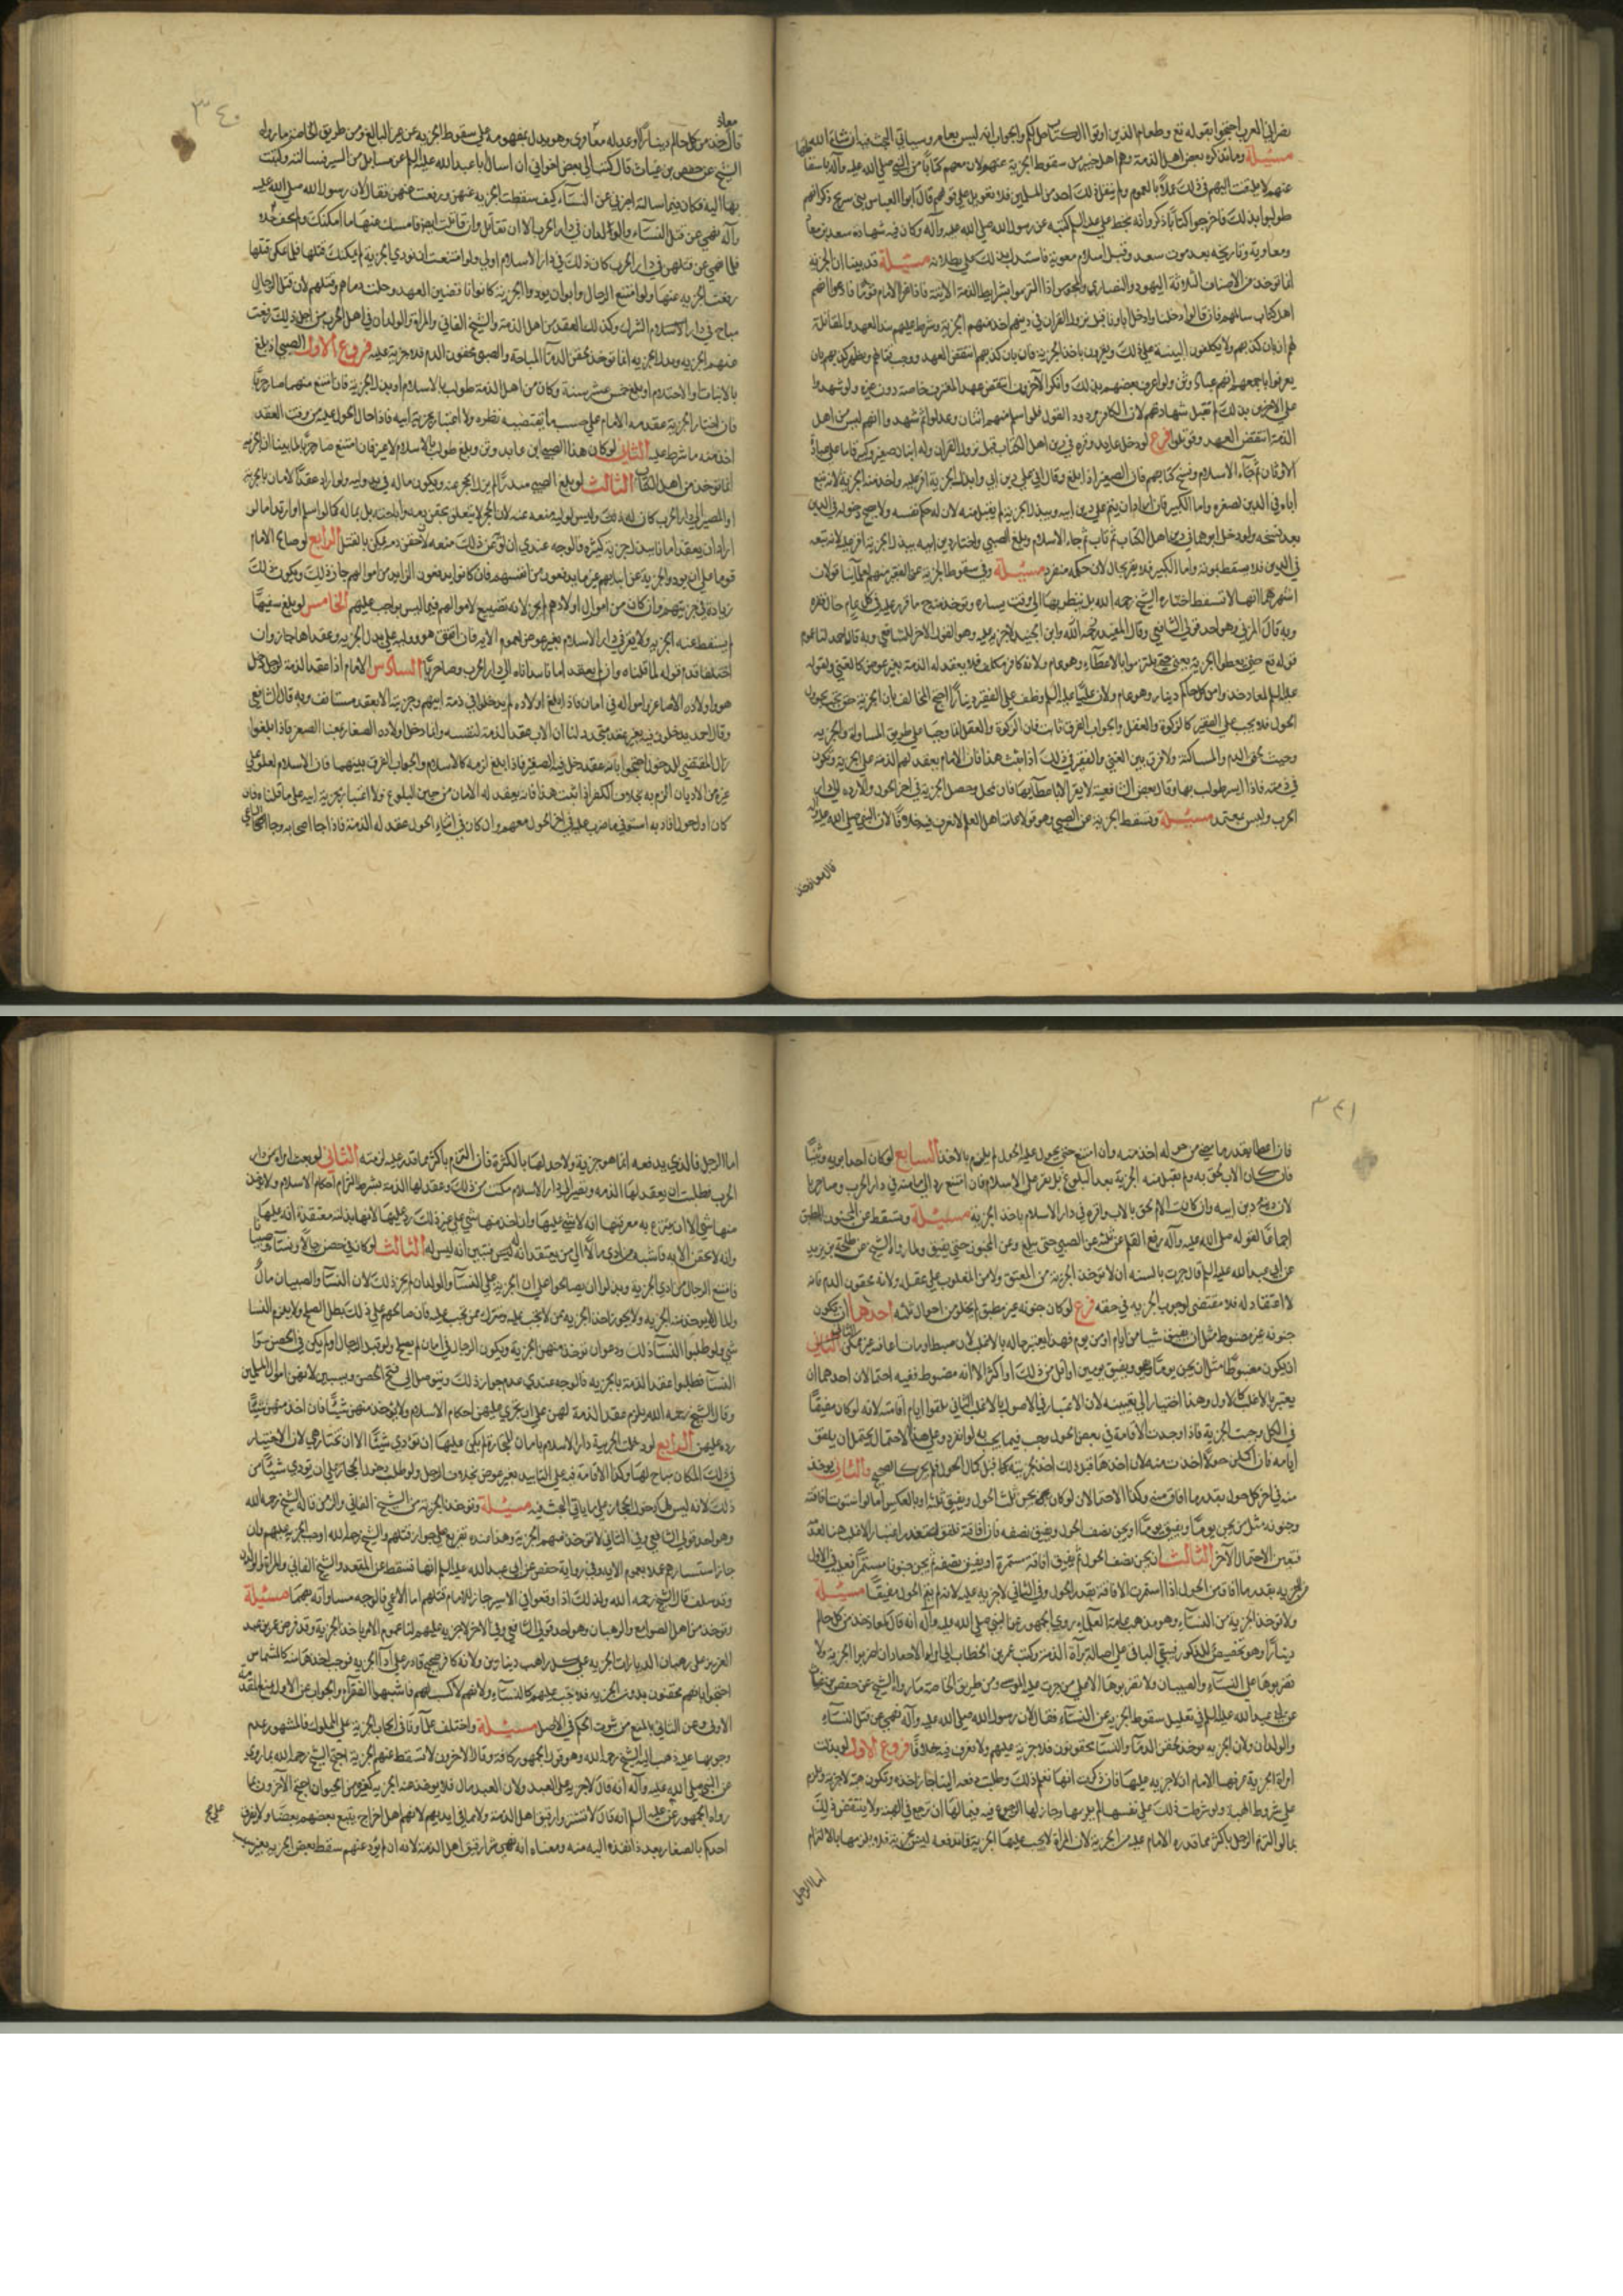 نصراني العرب احتجوا بقوله تع وطعام الذين اوتوا الكتاب حل لكم والجواب انه ليس بعام وسياتي البحث فيه ان شاء الله
مسئلة وما يذكره بعض اهل الذمة وهم اهل خيبر من سقوط الجزية عنهم لان معهم كتابا من النبي صلى الله عليه وآله باسقاطها
عنهم لا يلتفت اليهم في ذلك عملا بالعموم ولم ينقل ذلك احد من المسلمين فلا تعويل على قولهم قال ابو العباس بن سريج ذكر انهم
طولبوا بذلك فاخرجوا كتابا ذكروا انه بخط علي عليه السلم كتبه عن رسول الله صلى الله عليه وآله وكان فيه شهادة سعد بن معاذ
ومعاوية وتاريخه بعد موت سعد وقبل اسلام معوية فاستدل بذلك على بطلانه مسئلة قد بينا ان الجزية
انما توخذ من الاصناف الثلاثة اليهود والنصارى والمجوس اذا التزموا بشرايط الذمة الاتية فاذا غزا الامام قوما فادعوا انهم
اهل كتاب سالهم فان قالوا دخلنا او دخل اباونا قبل نزول القران في دينهم اخذ منهم الجزية وشرط عليهم نبذ العهد والمقاتلة
لهم ان بان كذبهم ولا يكلفون البينة على ذلك ويقرون باخذ الجزية فان بان كذبهم انتقض العهد ووجب قتالهم ويظهر كذبهم بان
يعترفوا باجمعهم انهم عباد وثن ولو اعترف بعضهم بذلك وانكر الآخرون انتقض عهد المعترف خاصة دون غيره ولو شهدوا
على الاخرين بذلك لم تقبل شهادتهم لان الكافر مردود القول فلو اسلم منهم اثنان وعدلوا ثم شهدوا انهم ليس من اهل
الذمة انتقض العهد وقوتلوا فرع لو دخل عابد وثن في دين اهل الكتاب قبل نزول القران وله ابنان صغير وكبير فاقاما على عبادة
الاوثان ثم جاء الاسلام ونسخ كتابهم فان الصغير اذا بلغ وقال اني على دين ابي وابذل الجزية اقر عليه واخذ منه الجزية لانه تبع
اباه في الدين لصغره واما الكبير فان اراد ان يقيم على دين ابيه ويبذل الجزية لم يقبل منه لان له حكم نفسه ولا يصح دخوله في الدين
بعد نسخه ولو دخل ابوهما في دين اهل الكتاب ثم مات ثم جاء الاسلام وبلغ الصبي واختار دين ابيه ببذل الجزية اقر عليه لانه تبعه
في الدين فلا يسقط بموته واما الكبير فلا يقر بحال لان حكمه منفرد مسئلة وفي سقوط الجزية عن الفقير منهم لعلمائنا قولان
اشهرهما انها لا تسقط اختاره الشيخ رحمه الله بل ينظر بها الى وقت يساره ويوخذ منه ح ما قرر عليه في كل عام حال فقره
وبه قال المزني وهو احد قولي الشافعي وقال المفيد رحمه الله وابن الجنيد لا جزية عليه وهو القول الاخر للشافعي وبه قال احمد لنا عموم
قوله تع حتى يعطوا الجزية يعني حتى يلتزموا بالاعطاء وهو عام ولانه كافر مكلف فلا يعقد له الذمة بغير عوض كالغني ولقوله
عليه السلم لمعاذ خذ من كل حالم دينار وهو عام ولان عليا عليه السلم وظف على الفقير دينارا احتج المخالف بان الجزية حق يجب بحول
الحول فلا يجب على الفقير كالزكوة والعقل والجواب الفرق ثابت فان الزكوة والعقل انما وجبا على طريق المساواة والجزية
وجبت لحقن الدم والمساكنة ولا فرق بين الغني والفقير في ذلك اذا ثبت هذا فان الامام يعقد لهم الذمة على الجزية وتكون
في ذمته فاذا ايسر طولب بها وقال بعض الشافعية لا يقر الا بالاعطاء بها فان تحمل وحصل الجزية في اخر الحول والا رده الى دار
الحرب وليس بمعتمد مسئلة وتسقط الجزية عن الصبي وهو قول علماء اهل العلم لا نعرف فيه خلافا لان النبي صلى الله عليه وآله
قال لمعاذ خذ
٣٤٠
معاذ
قال خذ من كل حالم دينارا او عدله معافري وهو يدل بمفهومه على سقوط الجزية عن غير البالغ ومن طريق الخاصة ما رواه
الشيخ عن حفص بن غياث قال كتب الي بعض اخواني ان اسال ابا عبد الله عليه السلم عن مسايل من السير فسالته وكتبت
بها اليه فكان فيما سالته اخبرني عن النساء كيف سقطت الجزية عنهن ورفعت عنهن فقال لان رسول الله صلى الله عليه
وآله نهى عن قتل النساء والولدان في دار الحرب الا ان تقاتل وان قاتلت ايضا فامسك عنها ما امكنك ولم تخف خللا
فلما نهى عن قتلهن في دار الحرب كان ذلك في دار الاسلام اولى ولو امتنعت ان تودي الجزية لم يمكنك قتلها فلما لم يمكن قتلها
رفعت الجزية عنها ولو امتنع الرجال وابوا ان يودوا الجزية كانوا ناقضين العهد وحلت دماهم وقتلهم لان قتل الرجال
مباح في دار الاسلام الشرك وكذلك المقعد من اهل الذمة والشيخ الفاني والمراة والولدان في اهل الحرب من اجل ذلك رفعت
عنهم الجزية ولان الجزية انما توخذ لحقن الدماء المباحة والصبي محقون الدم فلا جزية عليه فروع الاول الصبي اذا بلغ
بالانبات او الاحتلام او بلغ خمس عشر سنة وكان من اهل الذمة طولب بالاسلام او بذل الجزية فان امتنع منهما صار حربيا
فان اختار الجزية عقد معه الامام على حسب ما يقتضيه نظره ولا اعتبار بجزية ابيه فاذا حال الحول عليه من وقت العقد
اخذ منه ما شرط عليه الثاني لو كان هذا الصبي ابن عابد وثن وبلغ طولب بالاسلام لا غير فان امتنع صار حربيا لما بينا ان الجزية
انما توخذ من اهل الكتاب الثالث لو بلغ الصبي مبذرا لم يزل الحجر عنه ويكون ماله في يد وليه ولو اراد عقد الامان بالجزية
او المصير الى دار الحرب كان له ذلك وليس لوليه منعه عنه لان الحجر لا يتعلق بحقن دمه واباحته بل بماله كما لو اسلم او ارتد اما لو
اراد ان يعقد امانا ببذل جزية كثيرة فالوجه عندي ان لوليه منعه لان حقن دمه يمكن بالاقل الرابع لو صالح الامام
قوما على ان يودوا الجزية عن ابنائهم غير ما يدفعون من انفسهم فان كانوا يدفعون الزايد من اموالهم جاز ذلك ويكون ذلك
زيادة في جزيتهم وان كان من اموال اولادهم لم يجز لانه تضييع لاموالهم فيما ليس بواجب عليهم الخامس لو بلغ سفيها
لم يسقط عنه الجزية ولا يقر في دار الاسلام بغير عوض لعموم الاية فان اتفق هو ووليه على بذل الجزية وعقداها جاز وان
اختلفا قدم قوله لما قلناه وان لم يعقد امانا نبذناه الى دار الحرب وصار حربيا السادس الامام اذا عقد الذمة لرجل دخل
هو واولاده الاصاغر واموالهم في امان فاذا بلغ اولاده لم يدخلوا في ذمة ابيهم وجزيته الا بعقد مستانف وبه قال الشافعي
وقال احمد يدخلون فيه بغير عقد متجدد لنا ان الاب عقد الذمة لنفسه وانما دخل اولاده الصغار بمعنى الصغر فاذا بلغوا
زال المقتضي للدخول احتجوا بانه عقد دخل فيه الصغير فاذا بلغ لزمه كالاسلام والجواب الفرق بينهما فان الاسلام لعلوه على
غيره من الاديان الزم به بخلاف الكفر اذا ثبت هذا فانه يعقد له الامان من حين البلوغ ولا اعتبار بجزية ابيه على ما قلناه فان
كان اول حول اقاربه استوفى ما ضرب عليه في اخر الحول معهم وان كان في اثناء الحول عقد له الذمة فاذا جاء اصحابه وجاء الساعي
٣٤١
فان اعطا بقدر ما مضى من حوله اخذ منه وان امتنع حتى يحول عليه الحول لم يلزم بالاخذ السابع لو كان احد ابويه وثنيا
فان كان الاب لحق به ولم تقبل منه الجزية بعد البلوغ بل يقر على الاسلام فان امتنع رد الى مامنه في دار الحرب وصار حربيا
لان ولد دين ابيه وان كانت الام لحق بالاب واقره في دار الاسلام باخذ الجزية مسئلة وتسقط عن المجنون المطبق
اجماعا لقوله صلى الله عليه وآله رفع القلم عن ثلثة عن الصبي حتى يبلغ وعن المجنون حتى يفيق ولما رواه الشيخ عن طلحة بن يزيد
عن ابي عبد الله عليه السلم قال جرت بالسنة ان لا توخذ الجزية من المعتوه ولا من المغلوب على عقله ولانه محقون الدم فانه
لا اعتقاد له فلا مقتضى لوجوب الجزية في حقه فرع لو كان جنونه غير مطبق لم يخل من احوال ثلثة احدها ان يكون
جنونه غير مضبوط مثل ان يفيق شيئا من ايام او من يوم فهذا يعتبر حاله بالاغلب لان ضبط اوقات افاقته غير ممكن الثاني
ان يكون مضبوطا مثل ان يجن يوما ويفيق يومين او اقل من ذلك او اكثر الا انه مضبوط ففيه احتمالان احدهما ان
يعتبر بالاغلب كالاول وهذا اختيار ابي حنيفة لان الاعتبار في الاصول بالاغلب الثاني تلفق ايام افاقته لانه لو كان مفيقا
في الكل وجبت الجزية فاذا وجدت الافاقة في بعض الحول وجب فيما يجب به لو انفرد وعلى هذا الاحتمال يحتمل ان يلفق
ايامه فان اكملن حولا اخذت منه لان اخذها قبل ذلك اخذ لجزيته قبل كمال الحول فلم يجز كالصحيح والثاني يوخذ
منه في اخر كل حول بقدر ما افاق منه وكذا الاحتمالان لو كان يجن ثلث الحول ويفيق ثلثيه او بالعكس اما لو استوت افاقته
وجنونه مثل من يجن يوما ويفيق يوما او يجن نصف الحول ويفيق نصفه فان افاقته تلفق لتعذر اعتبار الاغلب هنا لعدمه
فتعين الاحتمال الآخر الثالث ان يجن نصف الحول ثم يفيق افاقة مستمرة او يفيق نصفه ثم يجن جنونا مستمرا فعليه في الاول
من الجزية بقدر ما افاق من الحول اذا استمرت الافاقة بعد الحول وفي الثاني لا جزية عليه لانه لم يتم الحول مفيقا مسئلة
ولا توخذ الجزية من النساء وهو مذهب عامة العلماء روى الجمهور عن النبي صلى الله عليه وآله انه قال لمعاذ خذ من كل حالم
دينارا وهو تخصيص للذكور فيبقى الباقي على اصالة براة الذمة وكتب عمر بن الخطاب الى امراء الاجناد ان اضربوا الجزية ولا
تضربوها على النساء والصبيان ولا تضربوها الا على من جرت عليه المواسي ومن طريق الخاصة ما رواه الشيخ عن حفص بن غياث
عن ابي عبد الله عليه السلم في تعليل سقوط الجزية عن النساء فقال لان رسول الله صلى الله عليه وآله نهى عن قتل النساء
والولدان ولان الجزية توخذ لحقن الدماء والنساء محقونون فلا جزية عليهم ولا نعرف فيه خلافا فروع الاول لو بذلت
امراة الجزية عرفها الامام ان لا جزية عليها فان ذكرت انها تعلم ذلك وطلبت دفعه الينا جاز اخذه وتكون هبة لا جزية وتلزم
على شروط الهبة ولو شرطت ذلك على نفسها لم يلزمها وجاز لها الرجوع فيه فيما لها ان ترجع في الهبة ولا ينتقض ذلك
بما لو التزم الرجل باكثر مما قدره الامام عليه من الجزية لان المراة لا يجب عليها الجزية فما تدفعه ليس بجزية فلا يلزمها بالالتزام
اما الرجل
اما الرجل فالذي يدفعه انما هو جزية ولا حد لها بالكثرة فان التزم باكثر مما قدر عليه لزمته الثاني لو بعثت امراة من دار
الحرب فطلبت ان يعقد لها الذمة وتصير الى دار الاسلام مكنت من ذلك وعقد لها الذمة بشرط التزام احكام الاسلام ولا يوخذ
منها شي الا ان تتبرع به بعد معرفتها انه لا شي عليها وان اخذ منها شي على غير ذلك رد عليها لانها بذلته معتقدة انه عليها
وانه لا يحقن الا به فاشبه من ادى مالا الى من يعتقد انه له ثم تبين انه ليس له الثالث لو كان في حصن رجالا ونساء وصبيانا
فامتنع الرجال من اداء الجزية وبذلوا ان يصالحوا على ان الجزية على النساء والولدان لم يجز ذلك لان النساء والصبيان مال
ولان المال لا يوخذ منه الجزية ولا يجوز اخذ الجزية ممن لا تجب عليه وترك ممن تجب عليه فان صالحهم على ذلك بطل الصلح ولا يلزم النساء
شي ولو طلبوا النساء ذلك ودعوا ان توخذ منهن الجزية ويكون الرجال في امان لم يصح ولو قتل الرجال او لم يكن في الحصن سوى
النساء فطلبوا عقد الذمة بالجزية فالوجه عندي عدم جواز ذلك ويتوصل الى فتح الحصن ويسبين لانهن اموال للمسلمين
وقال الشيخ رحمه الله يلزم عقد الذمة لهن على ان يجري عليهن احكام الاسلام ولا يوخذ منهن شيئا فان اخذ منهن شيئا
رده عليهن الرابع لو دخلت الحربية دار الاسلام بامان للتجارة لم يكن عليها ان تودي شيئا الا ان تختار هي لان الاختيار
في ذلك المكان مباح لها وكذا الاقامة فيه على التابيد بغير عوض بخلاف الرجل ولو طلبت دخول الحجاز على ان تودي شيئا من
ذلك لانه ليس لها دخول الحجاز على ما ياتي البحث فيه مسئلة وتوخذ الجزية من الشيخ الفاني والزمن قاله الشيخ رحمه الله
وهو احد قولي الشافعي وفي الثاني لا توخذ منهم الجزية وهذا عنده تفريع على جواز قتلهم والشيخ رحمه الله اوجب الجزية عليهم وان
جاز استرقاقهم عملا بعموم الاية وفي رواية حفص عن ابي عبد الله عليه السلم انها تسقط عن المقعد والشيخ الفاني والمراة والولدان
وقد سلف قال الشيخ رحمه الله ولذلك اذا وقعوا في الاسر جاز للامام قتلهم اما الاعمى فالوجه مساواته بهما مسئلة
وتوخذ من اهل الصوامع والرهبان وهو احد قولي الشافعي وفي الآخر لا جزية عليهم لنا عموم الامر باخذ الجزية وقد فرض عمر بن عبد
العزيز على رهبان الديارات الجزية على كل راهب دينارين ولانه كافر صحيح قادر على اداء الجزية فوجب اخذها منه كالشماس
احتجوا بانهم محقونون بدون الجزية فلا تجب عليهم كالنساء ولانهم لا كسب لهم فاشبهوا الفقراء والجواب عن الاول منع المقدمة
الاولى وعن الثاني بالمنع من ثبوت الحكم في الاصل مسئلة واختلف علماؤنا في ايجاب الجزية على المملوك فالمشهور عدم
وجوبها عليه ذهب اليه الشيخ رحمه الله وهو قول الجمهور كافة وقال الآخرون لا تسقط عنهم الجزية احتج الشيخ رحمه الله بما روي
عن النبي صلى الله عليه وآله انه قال لا جزية على العبد ولان العبد مال فلا يوخذ منه الجزية كغيره من الحيوان احتج الآخرون بما
رواه الجمهور عن علي عليه السلم انه قال لا تشتروا رقيق اهل الذمة ولا مما في ايديهم لانهم اهل خراج يتبع بعضهم بعضا ولا يقرن
احدكم بالصغار بعد اذ انقذه الله منه ومعناه انه نهى عن شراء رقيق اهل الذمة لانه ان لم يود عنهم سقط بعض الجزية بغير سبب